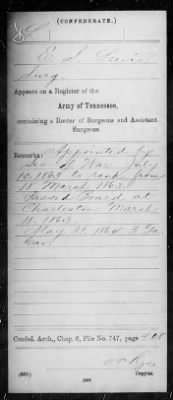 (CONFEDERATE.)
E. S. Lewis
Surg.
Appears on a Register of the
Army of Tennessee,
containing a Roster of Surgeons and Assistant
Surgeons.
Remarks: Appointed by
Sec. of War July
10, 1863 to rank from
18 March 1863.
Passed Board at
Charleston March
18, 1863.
May 31, 1864 3
Confed. Arch., Chap. 6, File No. 747, page
(635)
Copyist.